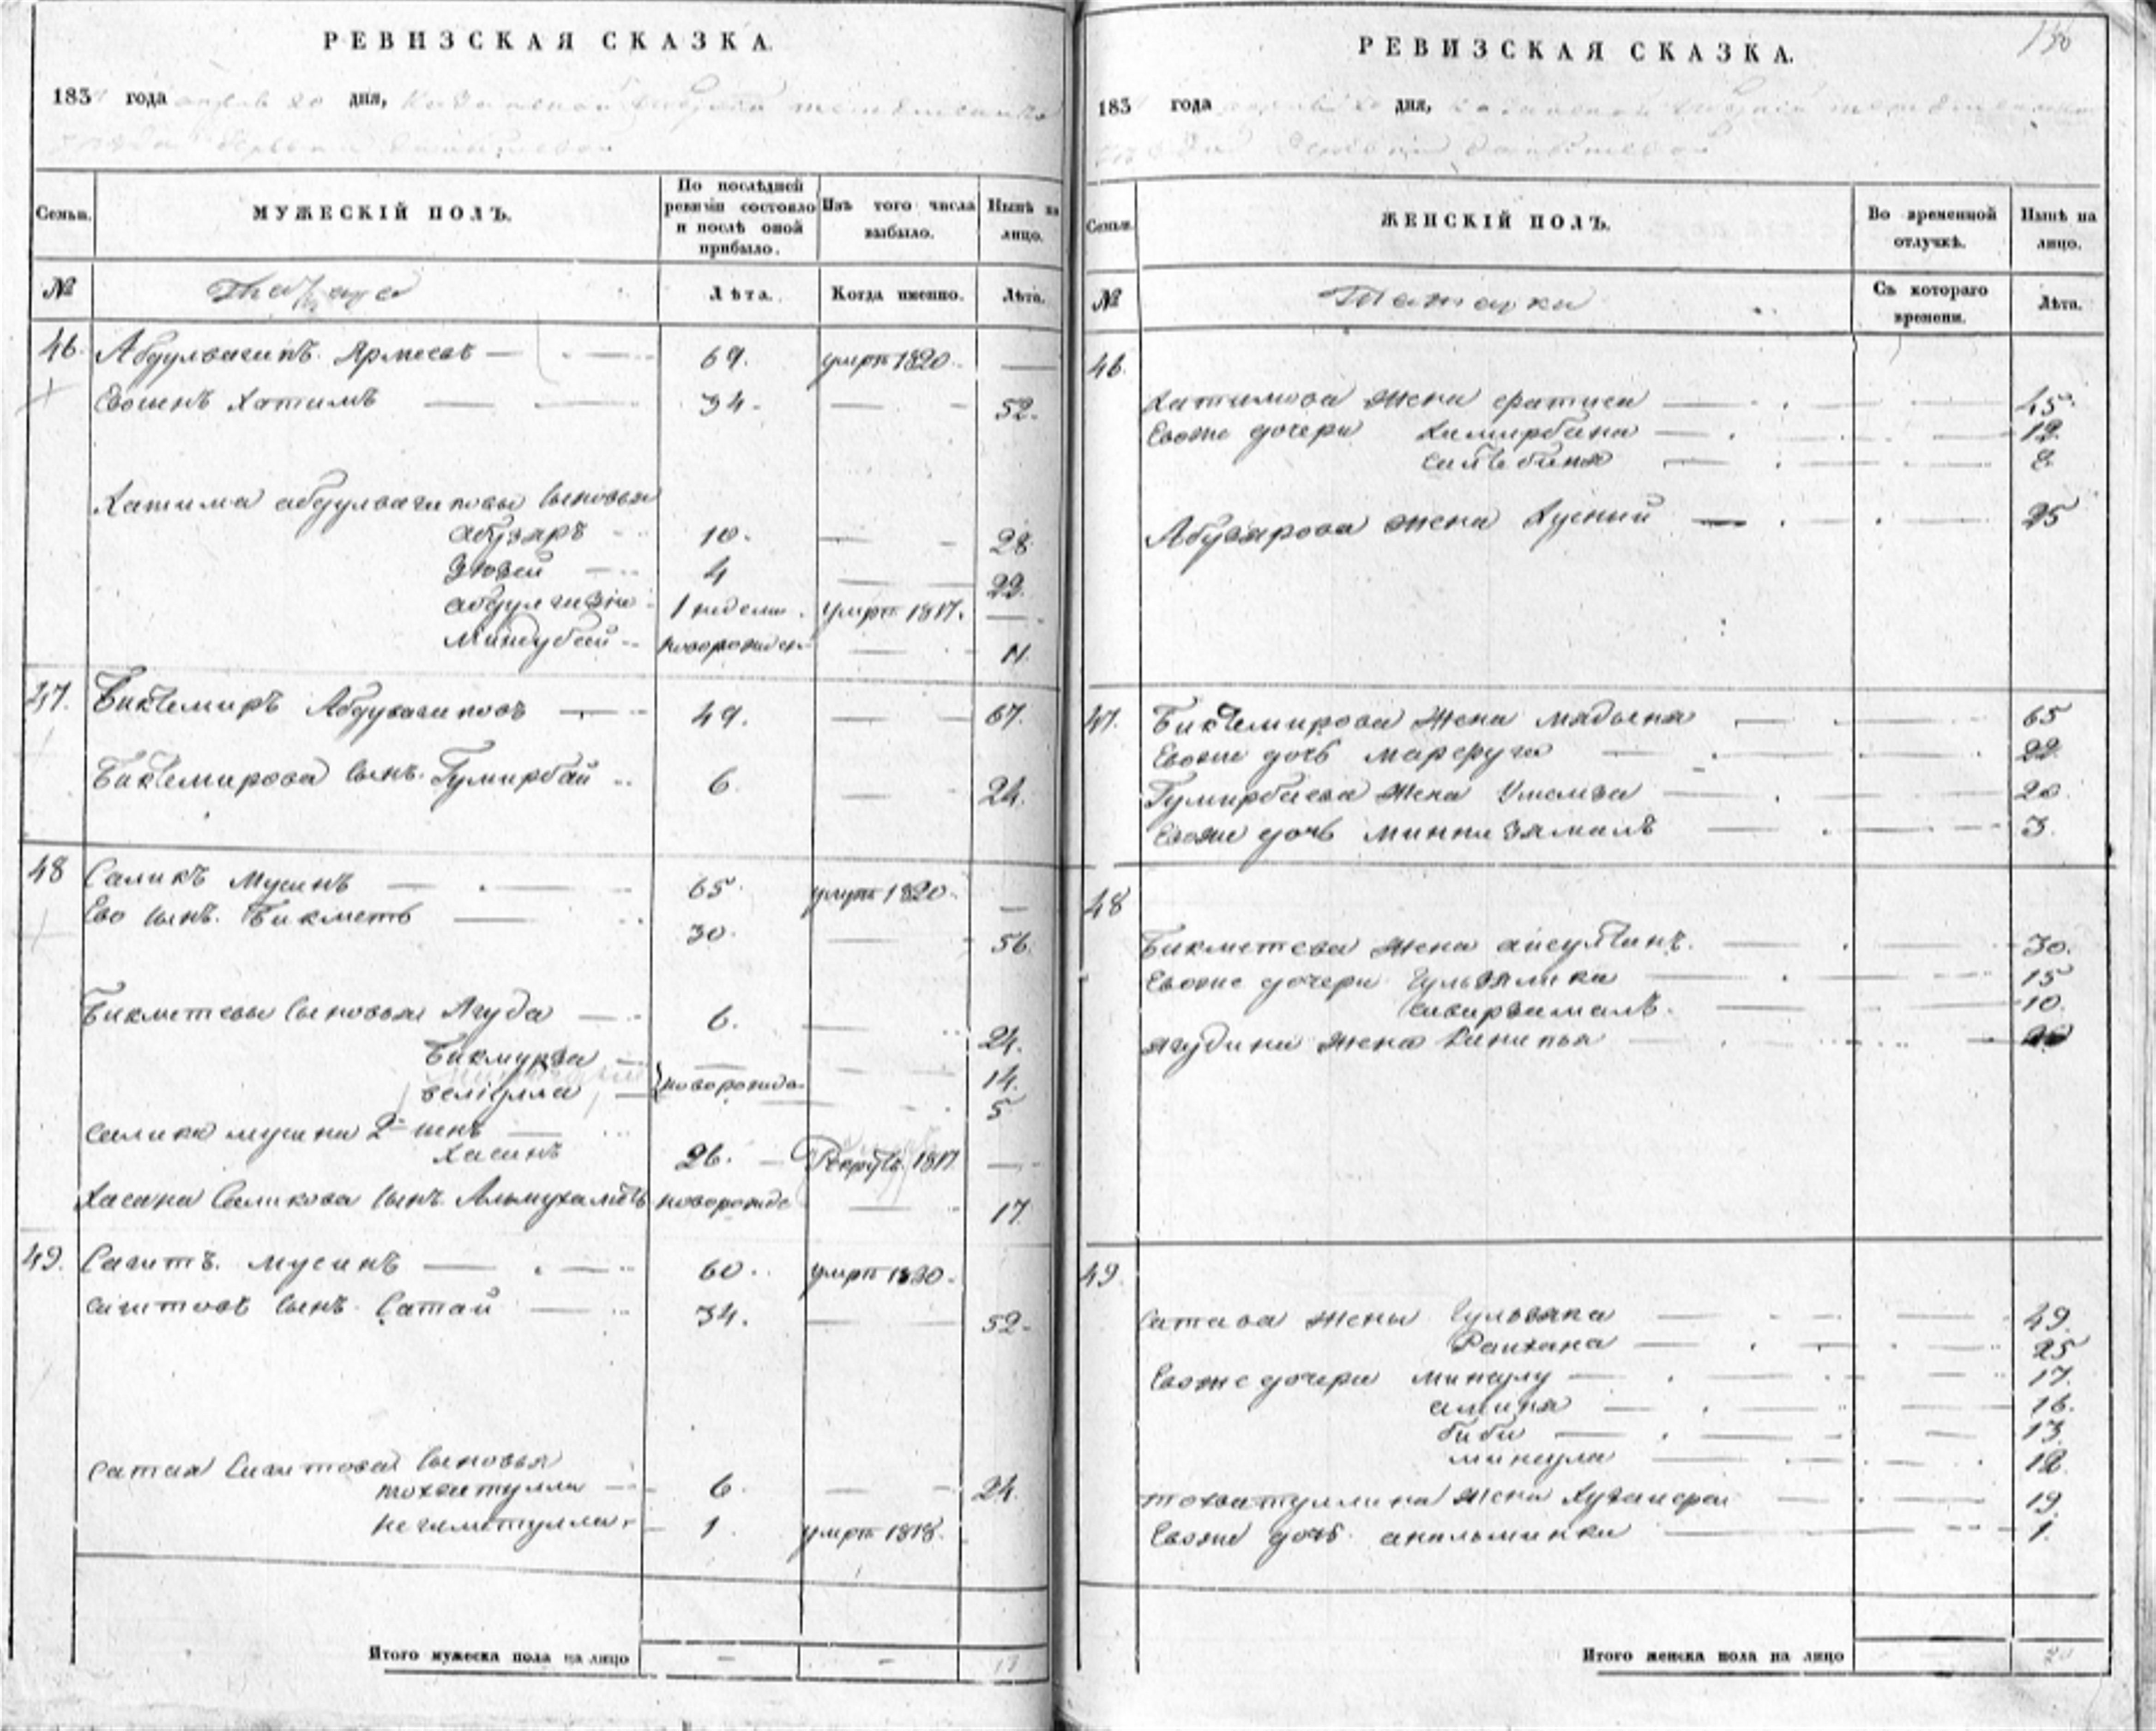 РЕВИЗСКАЯ СКАЗКА.
183 года дня,
Семьи. МУЖЕСКІЙ ПОЛЪ. По послѣдней ревизіи состояло и послѣ оной прибыло. Изъ того числа выбыло. Нынѣ на лицо.
№ Лѣта. Когда именно. Лѣта.
46. Абдулвагипъ Армеевъ 69. умръ 1820.
Евосынъ Хатимъ 34. 52.
Хатима абдулвагиповы сыновья
абузяръ 10. 28
Зювей 4 22.
1 недели умръ 1817.
Миндубай новорожден 11.
47. Биктемиръ Абдувагиповъ 49. 67.
Биктемирова сынъ Гумирбай 6. 24.
48 Саликъ Мусинъ 65. умръ 1820.
Ево сынъ Бикметь 30. 56.
Бикметевы сыновья Ягуда 6. 24.
Бикмурза 14.
велиулла новорожде 5
Салика мусина 2й сынъ
Хасанъ 26. Рекрутъ 1817
Хасана Саликова сынъ Альмухаметь новорожде 17.
49. Сагитъ Мусинъ 60. умръ 1830.
сагитовъ сынъ Сатай 34. 52.
Сатая Сагитова сыновья
тохватулла 6. 24.
негаметулла 1. умръ 1818.
Итого мужеска пола на лицо
РЕВИЗСКАЯ СКАЗКА.
183 года дня,
Семьи. ЖЕНСКІЙ ПОЛЪ. Во временной отлучкѣ. Нынѣ на лицо.
№ Татарки Съ котораго времени. Лѣта.
46.
Хатимова жена фатиса 45.
Евоже дочери Хамирбана 12.
8
Абузярова жена Хусний 25
47. Биктемирова жена мядьена 65
Евоже дочь марфуга 22
Гумирбаева жена Умамза 20.
Евоже дочь миннизямаль 3.
48
Бикметева жена айсулчинъ. 30.
Евоже дочери Гульзямика 15
10.
ягудина жена Ханипья
49.
Сатаева жены Гульзяна 49.
Раихана 25
Евоже дочери минсулу 17.
амина 16.
биби 13.
минсула 12.
тохватуллина жена 19.
Евоже дочь 1.
Итого женска пола на лицо